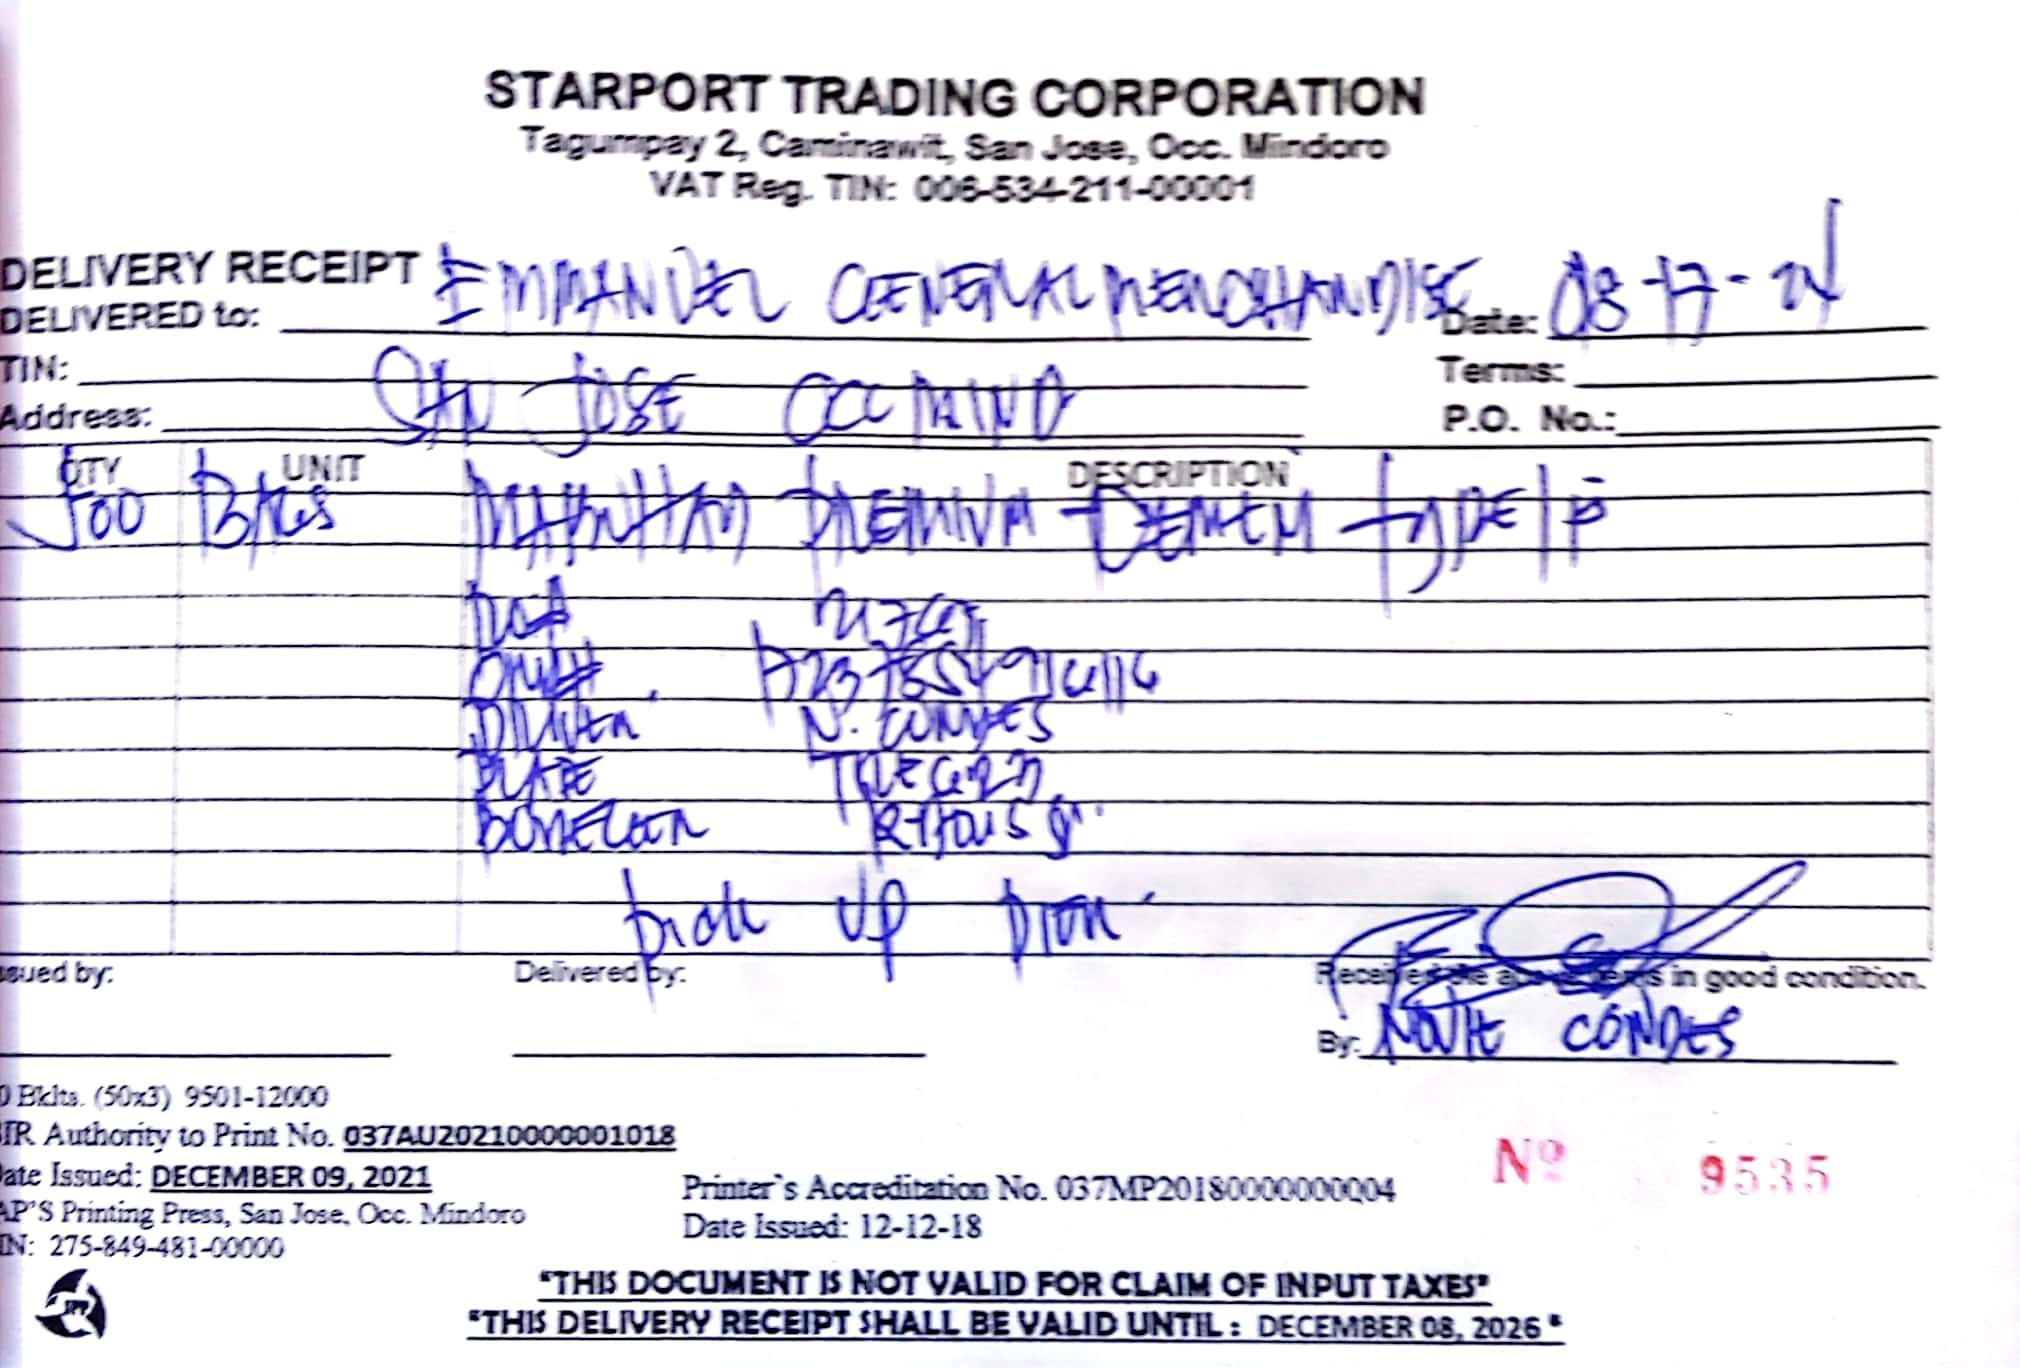 STARPORT TRADING CORPORATION
Tagumpay 2, Caminawit, San Jose, Occ. Mindoro
VAT Reg. TIN: 006-534-211-00001
DELIVERY RECEIPT
DELIVERED to: EMMANUEL GENERAL MERCHANDISE Date: 08-17-24
TIN: Terms:
Address: SAN JOSE OCC MINDO P.O. No.:
QTY UNIT DESCRIPTION
500 BAGS PREMIUM CEMENT TYPE 1P
DRIVER N. CONDES
PLATE
Pick up pier
ssued by: Delivered by: Received the above items in good condition.
By: NOVIE CONDES
0 Bklts. (50x3) 9501-12000
BIR Authority to Print No. 037AU20210000001018
ate Issued: DECEMBER 09, 2021
AP'S Printing Press, San Jose, Occ. Mindoro
IN: 275-849-481-00000
Printer's Accreditation No. 037MP20180000000004
Date Issued: 12-12-18
Nº 9535
JPP
"THIS DOCUMENT IS NOT VALID FOR CLAIM OF INPUT TAXES"
"THIS DELIVERY RECEIPT SHALL BE VALID UNTIL : DECEMBER 08, 2026 "